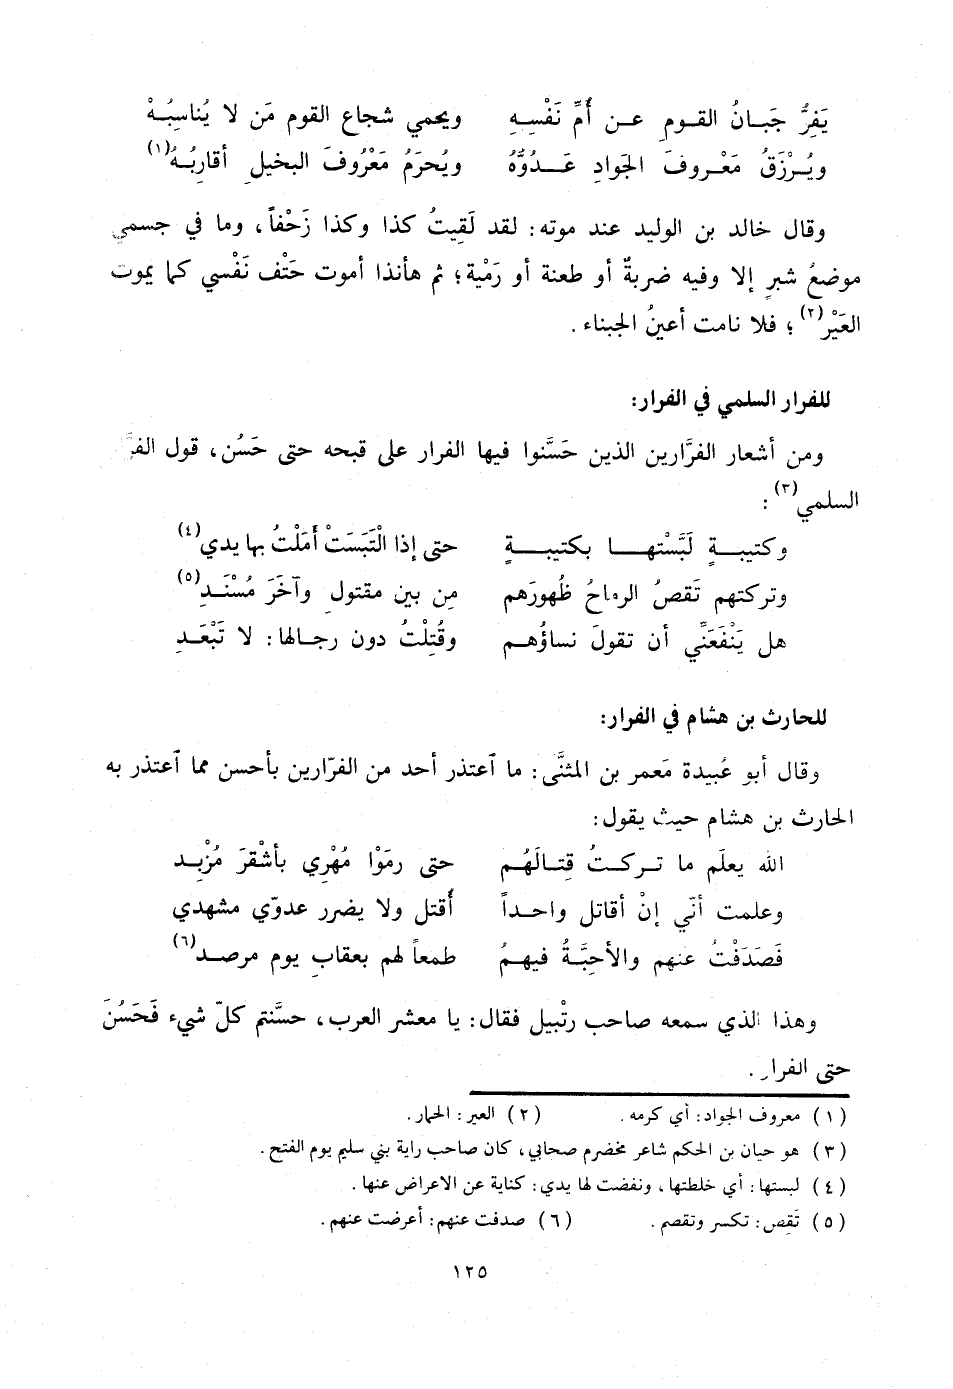 يَفِرُّ جَبـانُ القـومِ عـن أُمِّ نَفْسِهِ ويحمي شجاع القوم مَن لا يُناسِبُـهْ
ويُـرْزَقُ مَعْـروفَ الجَوادِ عَـــدُوُّهُ ويُحرَمُ مَعْرُوفَ البخيلِ أقارِبُـهُ(١)
وقال خالد بن الوليد عند موته: لقد لَقِيتُ كذا وكذا زَحْفاً، وما في جسمي
موضعُ شبرٍ إلا وفيه ضربةٌ أو طعنة أو رَمْية؛ ثم هأنذا أموت حَتْف نَفْسي كما يموت
العَيْر(٢)؛ فلا نامت أعينُ الجبناء.
للفرار السلمي في الفرار:
ومن أشعار الفرَّارين الذين حَسَّنوا فيها الفرار على قبحه حتى حَسُن، قول
السلمي(٣):
وكتيبـةٍ لَبَّسْتهـــا بكتيبـــةٍ حتى إذا الْتَبَسَتْ أَمَلْتُ بها يدي(٤)
وتركتهم تَقصُ الرماحُ ظُهورَهم مِن بين مقتولٍ وآخَرَ مُسْنَـدِ(٥)
هل يَنْفَعَنِّي أن تقولَ نساؤُهـم وقُتِلْتُ دون رجالها: لا تَبْعَـدِ
للحارث بن هشام في الفرار:
وقال أبو عُبيدة مَعمر بن المثنَّى: ما آعتذر أحد من الفرّارين بأحسن مما آعتذر به
الحارث بن هشام حيث يقول:
الله يعلَم ما تـركـتُ قِتالَهُـم حتى رمَوْا مُهْرِي بأشْقرَ مُزْبِـد
وعلمت أنّي إنْ أقاتل واحـداً أقتل ولا يضرر عدوّي مشهدي
فَصَدَفْتُ عنهم والأحِبَّـةُ فيهـمُ طمعاً لهم بعقابِ يوم مرصـد(٦)
وهذا الذي سمعه صاحب رتْبيل فقال: يا معشر العرب، حسَّنتم كلّ شيء فَحَسُنَ
حتى الفرار.
(١) معروف الجواد: أي كرمه. (٢) العير: الحمار.
(٣) هو حبان بن الحكم شاعر مخضرم صحابي، كان صاحب راية بني سليم يوم الفتح.
(٤) لبستها: أي خلطتها، ونفضت لها يدي: كناية عن الاعراض عنها.
(٥) تَقِص: تكسر وتقصم. (٦) صدفت عنهم: أعرضت عنهم.
١٢٥